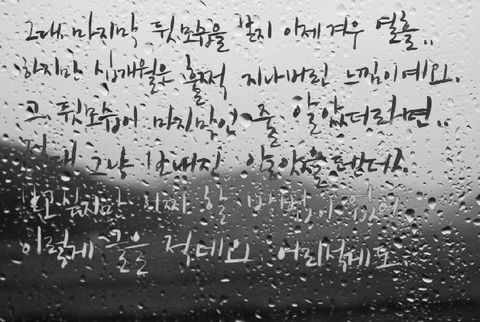 그대 마지막 뒷모습을 본지 이제 겨우 열흘..
하지만 십개월은 훌쩍 지나버린 느낌이에요.
그 뒷모습이 마지막인 줄 알았더라면..
절대 그냥 보내진 않았을텐데..
보고싶지만 어찌 할 방법이 없어
이렇게 글을 적네요 어리석게도